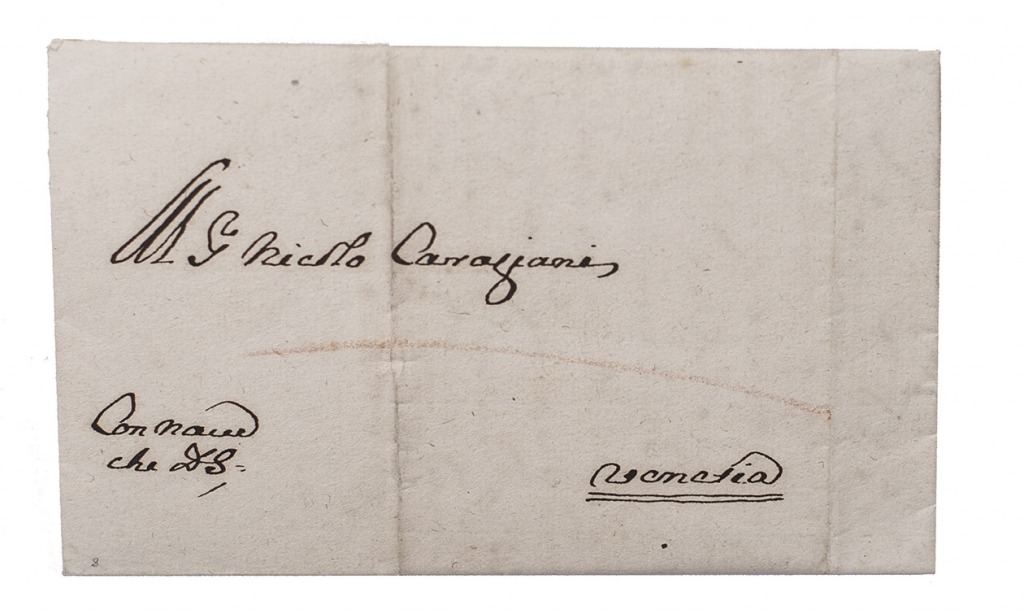 Sr. Nicolo Caragiani
Con nave
che D. S.
Venetia
8